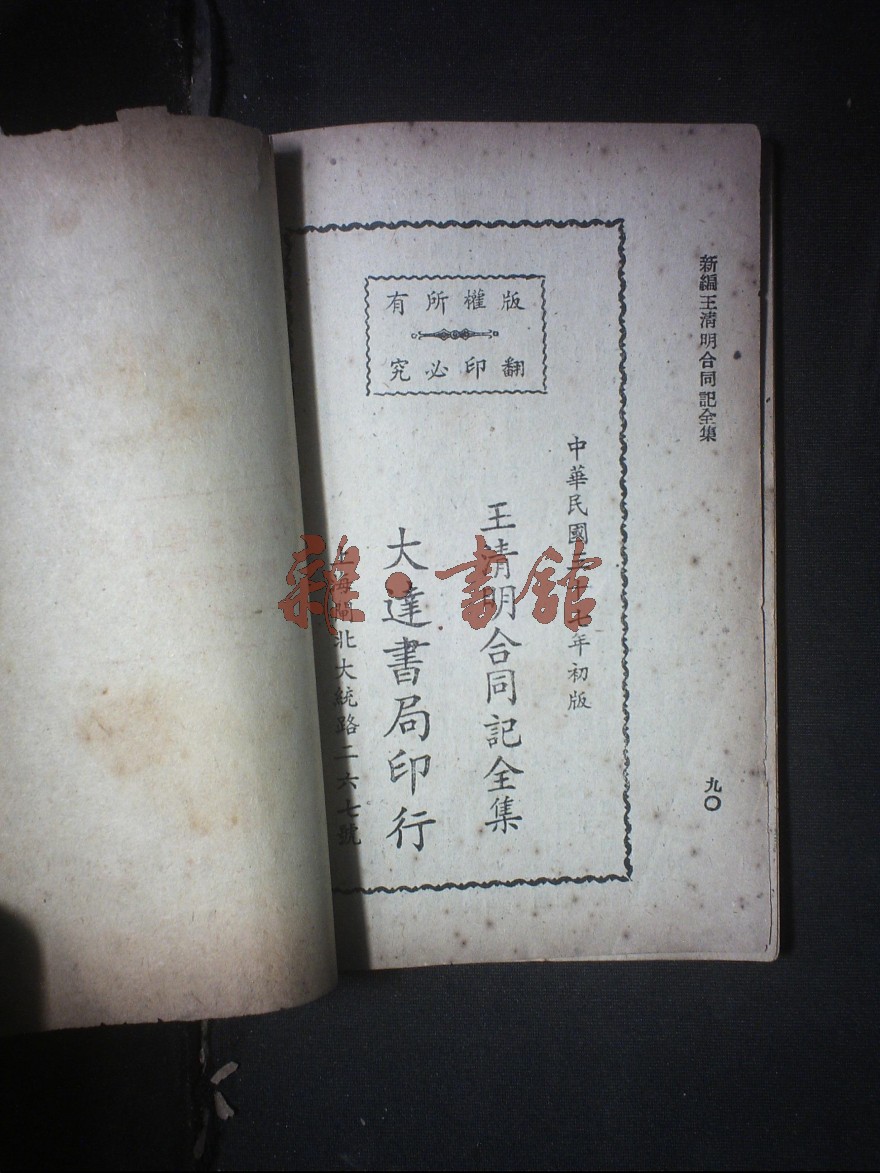 新編王清明合同記全集
九〇
版權所有
翻印必究
中華民國三十七年初版
王清明合同記全集
大達書局印行
上海閘北大統路二六七號
雜·書館